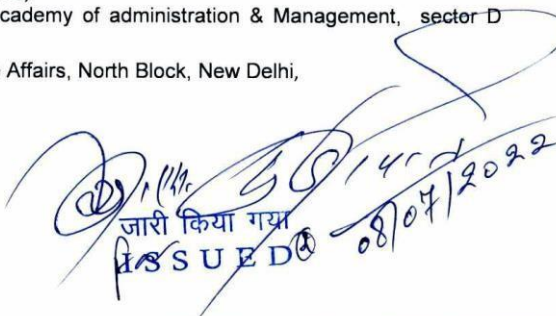 cademy of administration & Management, sector D
Affairs, North Block, New Delhi,
जारी किया गया
ISSUED
08/07/2022